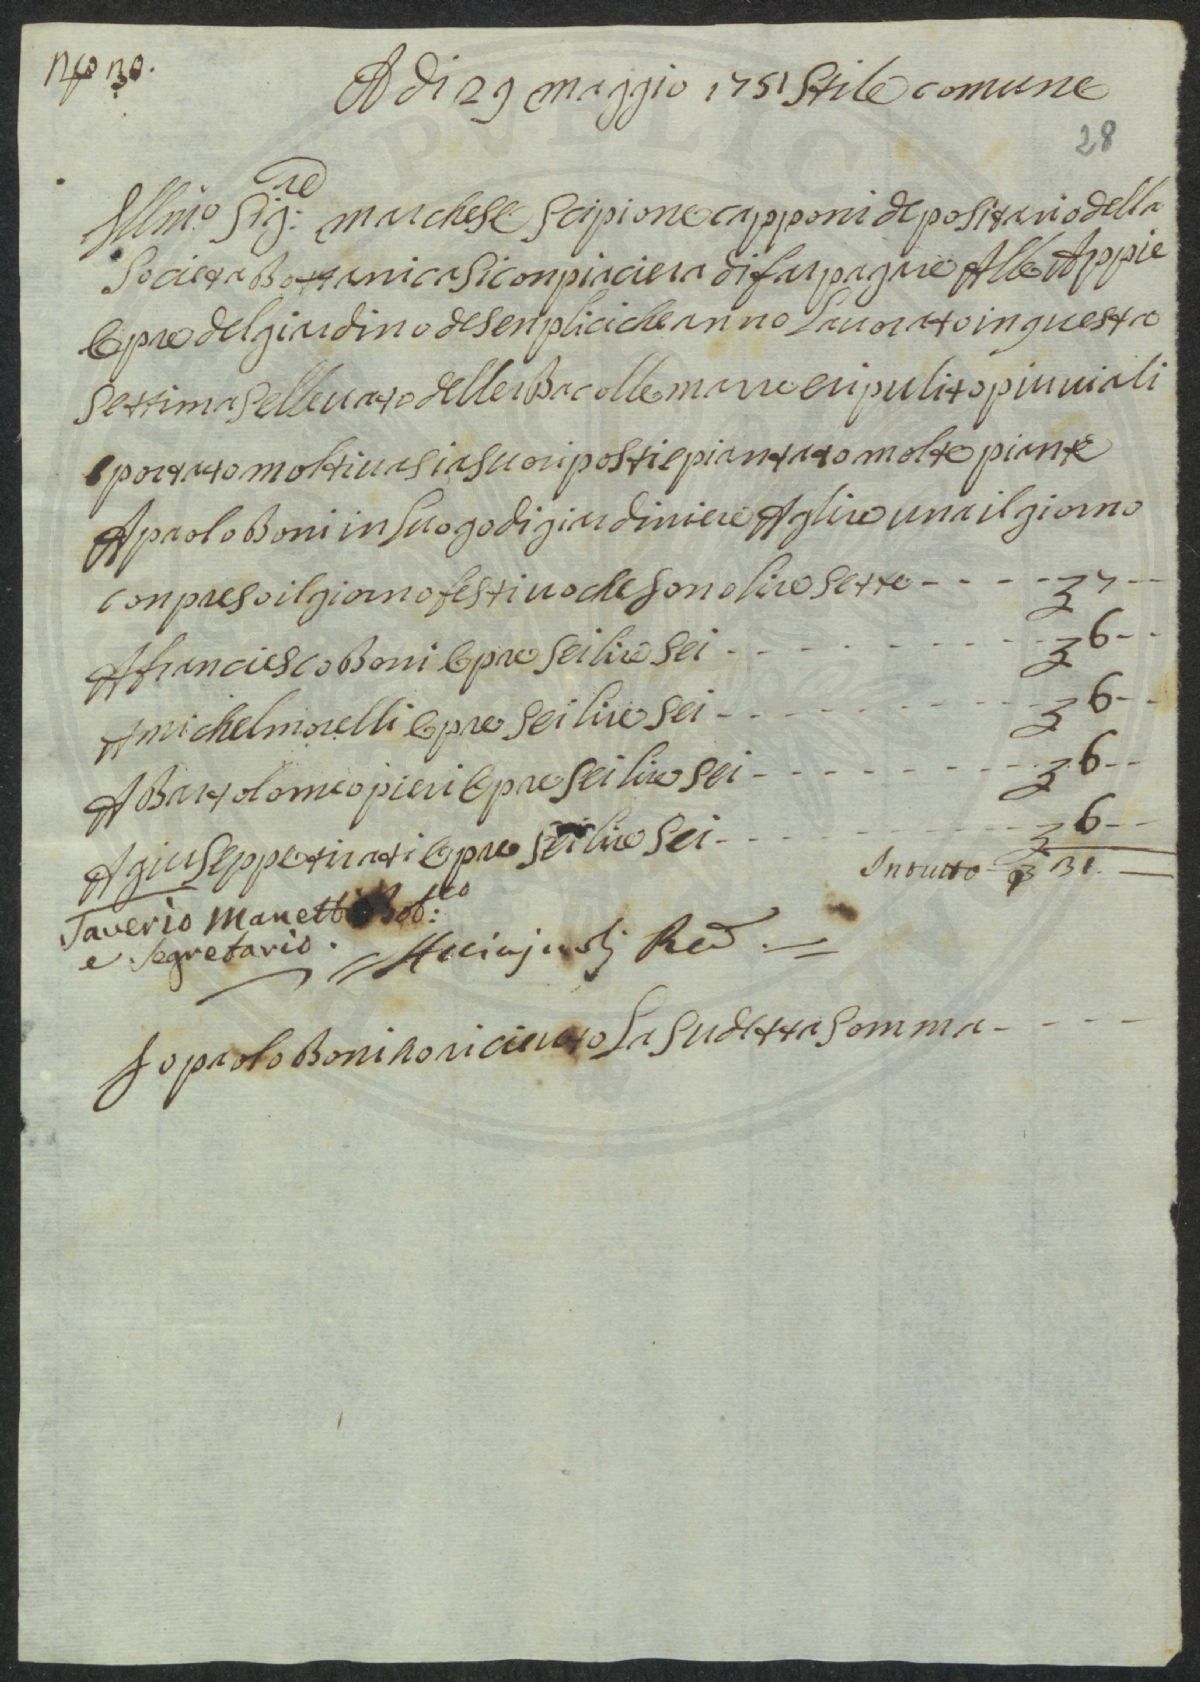 N.o 30.
A di 29 maggio 1751 Stile comune
28
Illmo Sig:re marchese Scipione capponi depositario della
Societa Bottanica Si conpiaciera di far pagare Alle Appie
Opre del giardino de Senplici che anno Lavorato in questa
Settima Sellevato dellerBa colle marre e ripulito piu viali
e portato molti vasi a Suori posti e piantato molte piante
A paolo Boni in Luogo di giardiniere A lire una il giorno
conpreso il giorno festivo che Sono lire Sette - - - - 7 - -
A franciesco Boni Opre Sei lire Sei - - - - - - - - 6 - -
A michel morelli Opre Sei lire Sei - - - - - - - - 6 - -
A Bartolomeo pieri Opre Sei lire Sei - - - - - - - - 6 - -
A giuseppe tirati Opre Sei lire Sei - - - - - - - - 6 - -
In tutto - 31. —
Saverio Manetti
e Segretario.
Io paolo Boni ho riceuto La Sudetta Somma - - - -